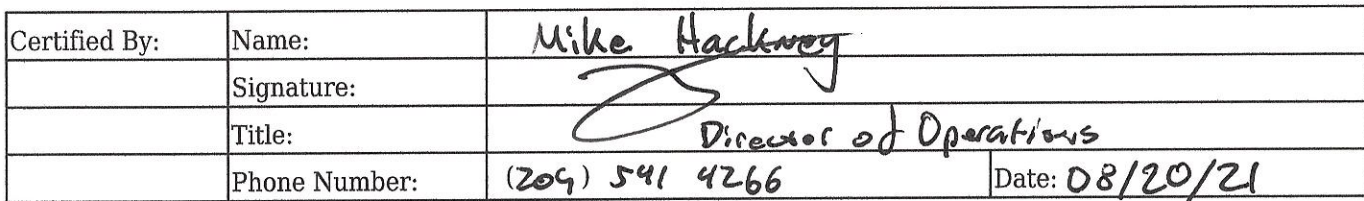 Certified By: Name: Mike Hackney
Signature:
Title: Director of Operations
Phone Number: (209) 541 4266 Date: 08/20/21